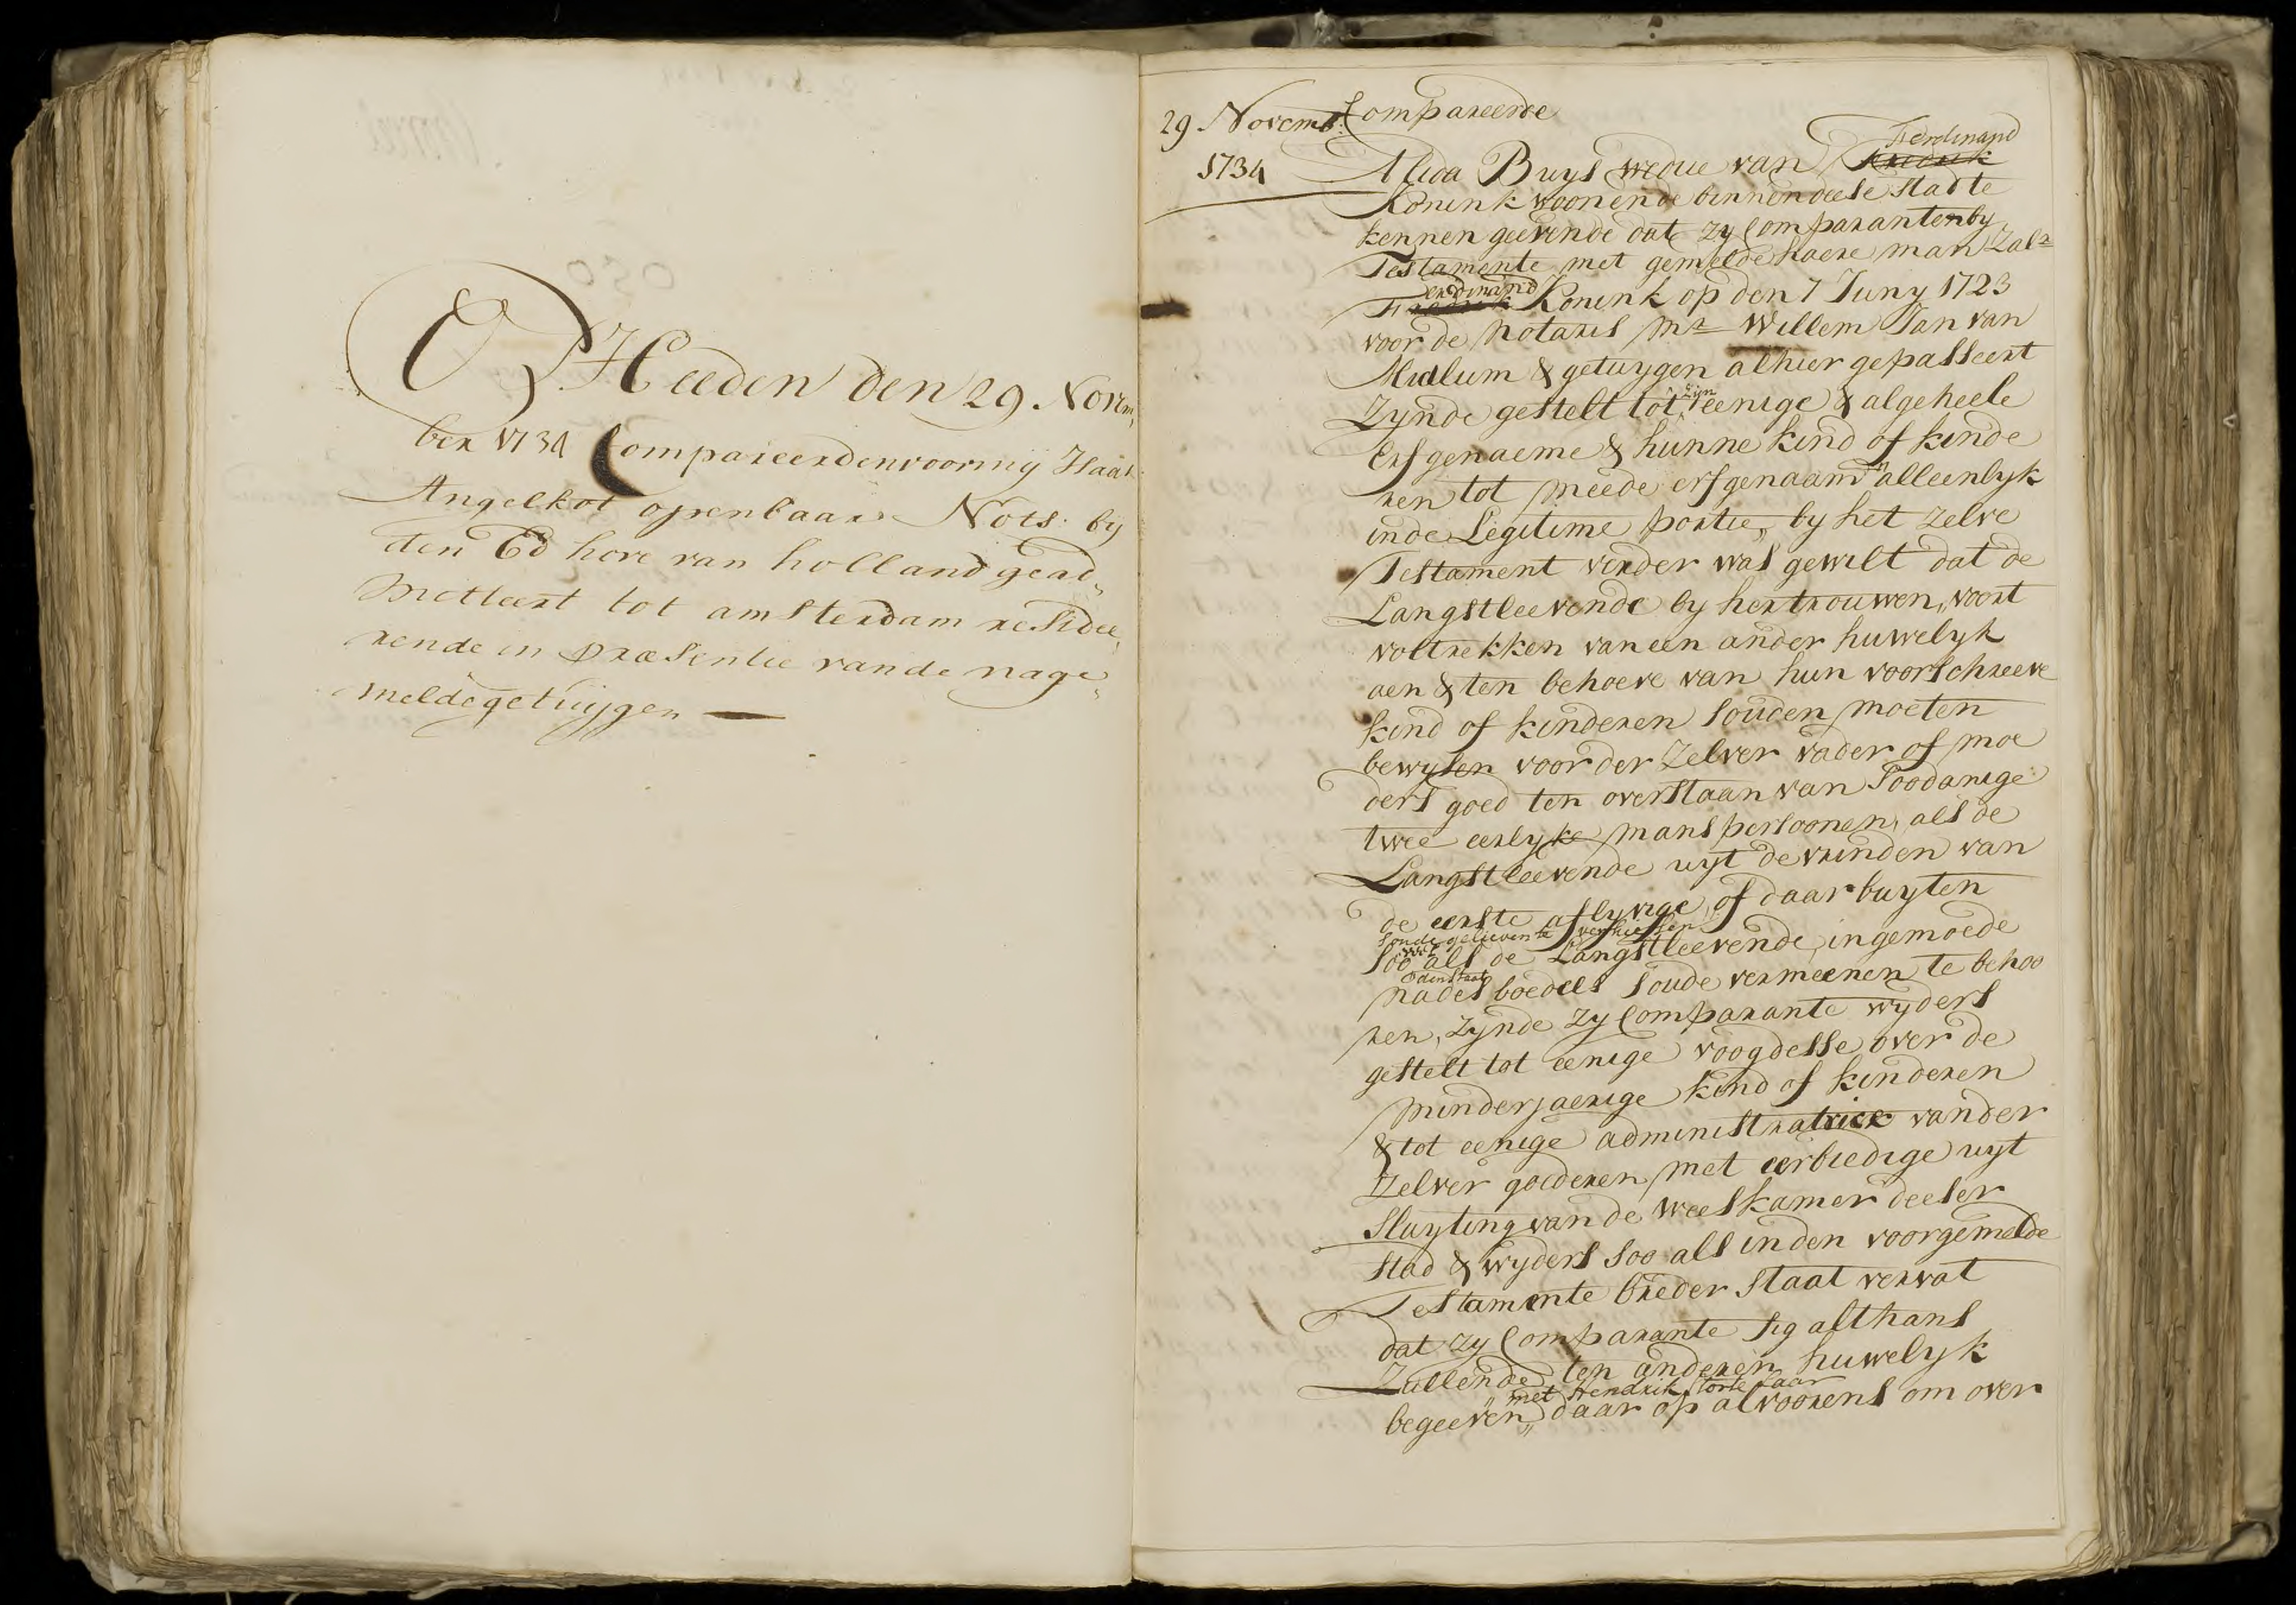 Op Heeden den 29 Novem„
ber 1734 Compareerden voor mij Isaak
Angelkot openbaar Nots: bij
den Ed hove van holland gead„
mitteert tot amsterdam residee„
rende in præsentie van de nage„
melde getuijgen
29 Novemb: Compareerde
1734
Ferdinand
Alida Buys wedue van Fredrik
Konink woonende binnen deese stad te
kennen geevende dat zy Comparanten by
Testamente met gemelde haere man Zalr
erdinand
Fredrik Konink op den 7 Juny 1723
voor de notaris Mr Willem Jan van
Midlum & getuygen alhier gepasseert
zyn
Zynde gestelt tot eenige & algeheele
Erfgenaeme & hunne kind of kinde
ren tot meede erfgenaam alleenlyk
in de Legitime portie, by het zelve
Testament verder was gewilt dat de
Langstleevende by hertrouwen, voort
voltrekken van een ander huwelyk
aen & ten behoeve van hun voorschreeve
kind of kinderen souden moeten
bewysen voor der zelver vader of moe
ders goed ten overstaan van soodanige
twee eerlyke manspersoonen, als de
Langstleevende uyt de vrinden van
de eerste aflyvige of daar buyten
soude gelieven te verkiesen
soo als de Langstleevende, in gemoede
den staat
na des boedels soude vermeenen te behoo
ren, zynde zy Comparante wyders
gestelt tot eenige voogdesse over de
minderjaerige kind of kinderen
& tot eenige administratrice van der
zelver goederen, met eerbiedige uyt
sluyting van de weeskamer deeser
stad & wyders soo als in den voorgemelde
Testamente breder staat vervat
dat zy Comparante sig althans
Zullende ten anderen huwelyk
met Hendrik
begeeven, daar op alvoorens om over